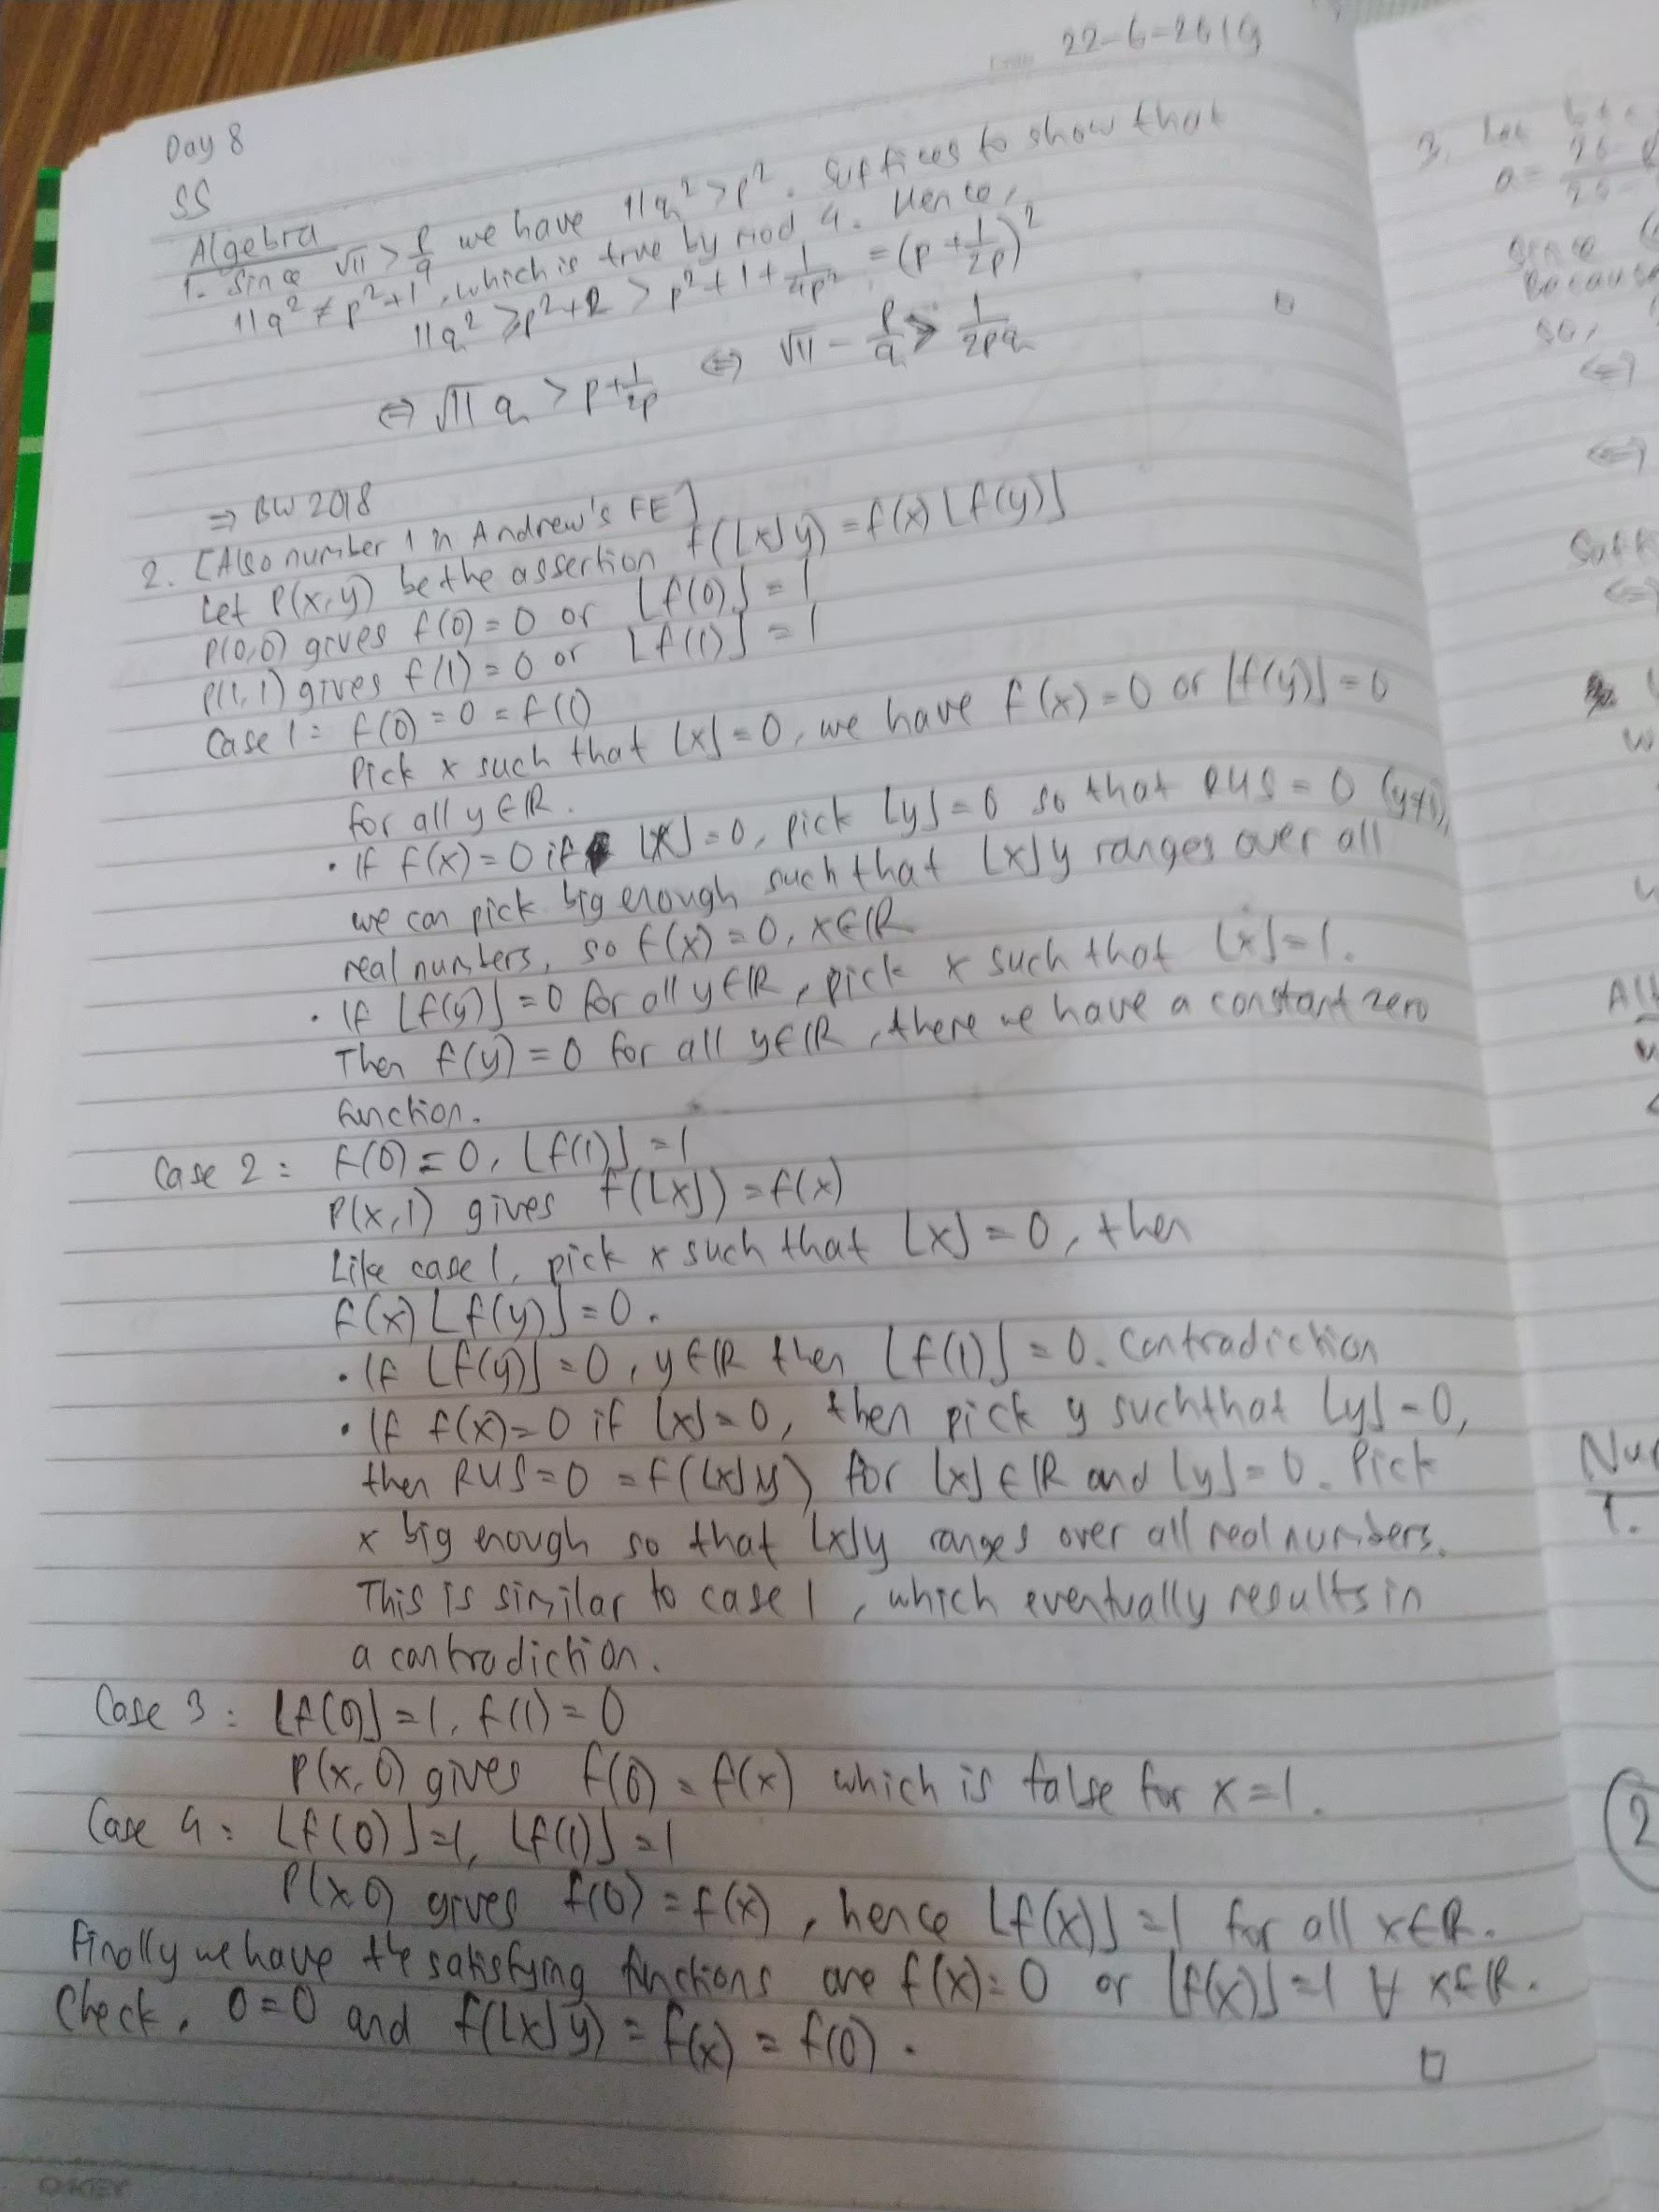 22-6-2019
Day 8
SS
Algebra
1. Since √11 > p/q we have 11q² > p². Suffices to show that
11q² ≠ p²+1, which is true by mod 4. Hence,
11q² ≥ p²+2 > p²+1+1/4p² = (p+1/2p)²
⇔ √11 q > p+1/2p ⇔ √11 - p/q > 1/2pq □
⇒ BW 2018
2. [Also number 1 in Andrew's FE]
Let P(x,y) be the assertion f(⌊x⌋y) = f(x)⌊f(y)⌋
P(0,0) gives f(0) = 0 or ⌊f(0)⌋ = 1
P(1,1) gives f(1) = 0 or ⌊f(1)⌋ = 1
Case 1: f(0) = 0 = f(1)
Pick x such that ⌊x⌋ = 0, we have f(x) = 0 or ⌊f(y)⌋ = 0
for all y∈ℝ.
• If f(x) = 0 if ⌊x⌋ = 0, pick ⌊y⌋ = 0 so that RHS = 0
we can pick big enough such that ⌊x⌋y ranges over all
real numbers, so f(x) = 0, x∈ℝ
• If ⌊f(y)⌋ = 0 for all y∈ℝ, pick x such that ⌊x⌋ = 1.
Then f(y) = 0 for all y∈ℝ, there we have a constant zero
function.
Case 2: f(0) = 0, ⌊f(1)⌋ = 1
P(x,1) gives f(⌊x⌋) = f(x)
Like case 1, pick x such that ⌊x⌋ = 0, then
f(x)⌊f(y)⌋ = 0.
• If ⌊f(y)⌋ = 0, y∈ℝ then ⌊f(1)⌋ = 0. Contradiction
• If f(x) = 0 if ⌊x⌋ = 0, then pick y such that ⌊y⌋ = 0,
then RHS = 0 = f(⌊x⌋y) for ⌊x⌋∈ℝ and ⌊y⌋ = 0. Pick
x big enough so that ⌊x⌋y ranges over all real numbers.
This is similar to case 1, which eventually results in
a contradiction.
Case 3: ⌊f(0)⌋ = 1, f(1) = 0
P(x,0) gives f(0) = f(x) which is false for x = 1.
Case 4: ⌊f(0)⌋ = 1, ⌊f(1)⌋ = 1
P(x,0) gives f(0) = f(x), hence ⌊f(x)⌋ = 1 for all x∈ℝ.
Finally we have the satisfying functions are f(x) = 0 or ⌊f(x)⌋ = 1 ∀ x∈ℝ.
Check, 0=0 and f(⌊x⌋y) = f(x) = f(0). □
3. Let
a =
Since
Because
so,
⇔
⇔
⇔
1.
2